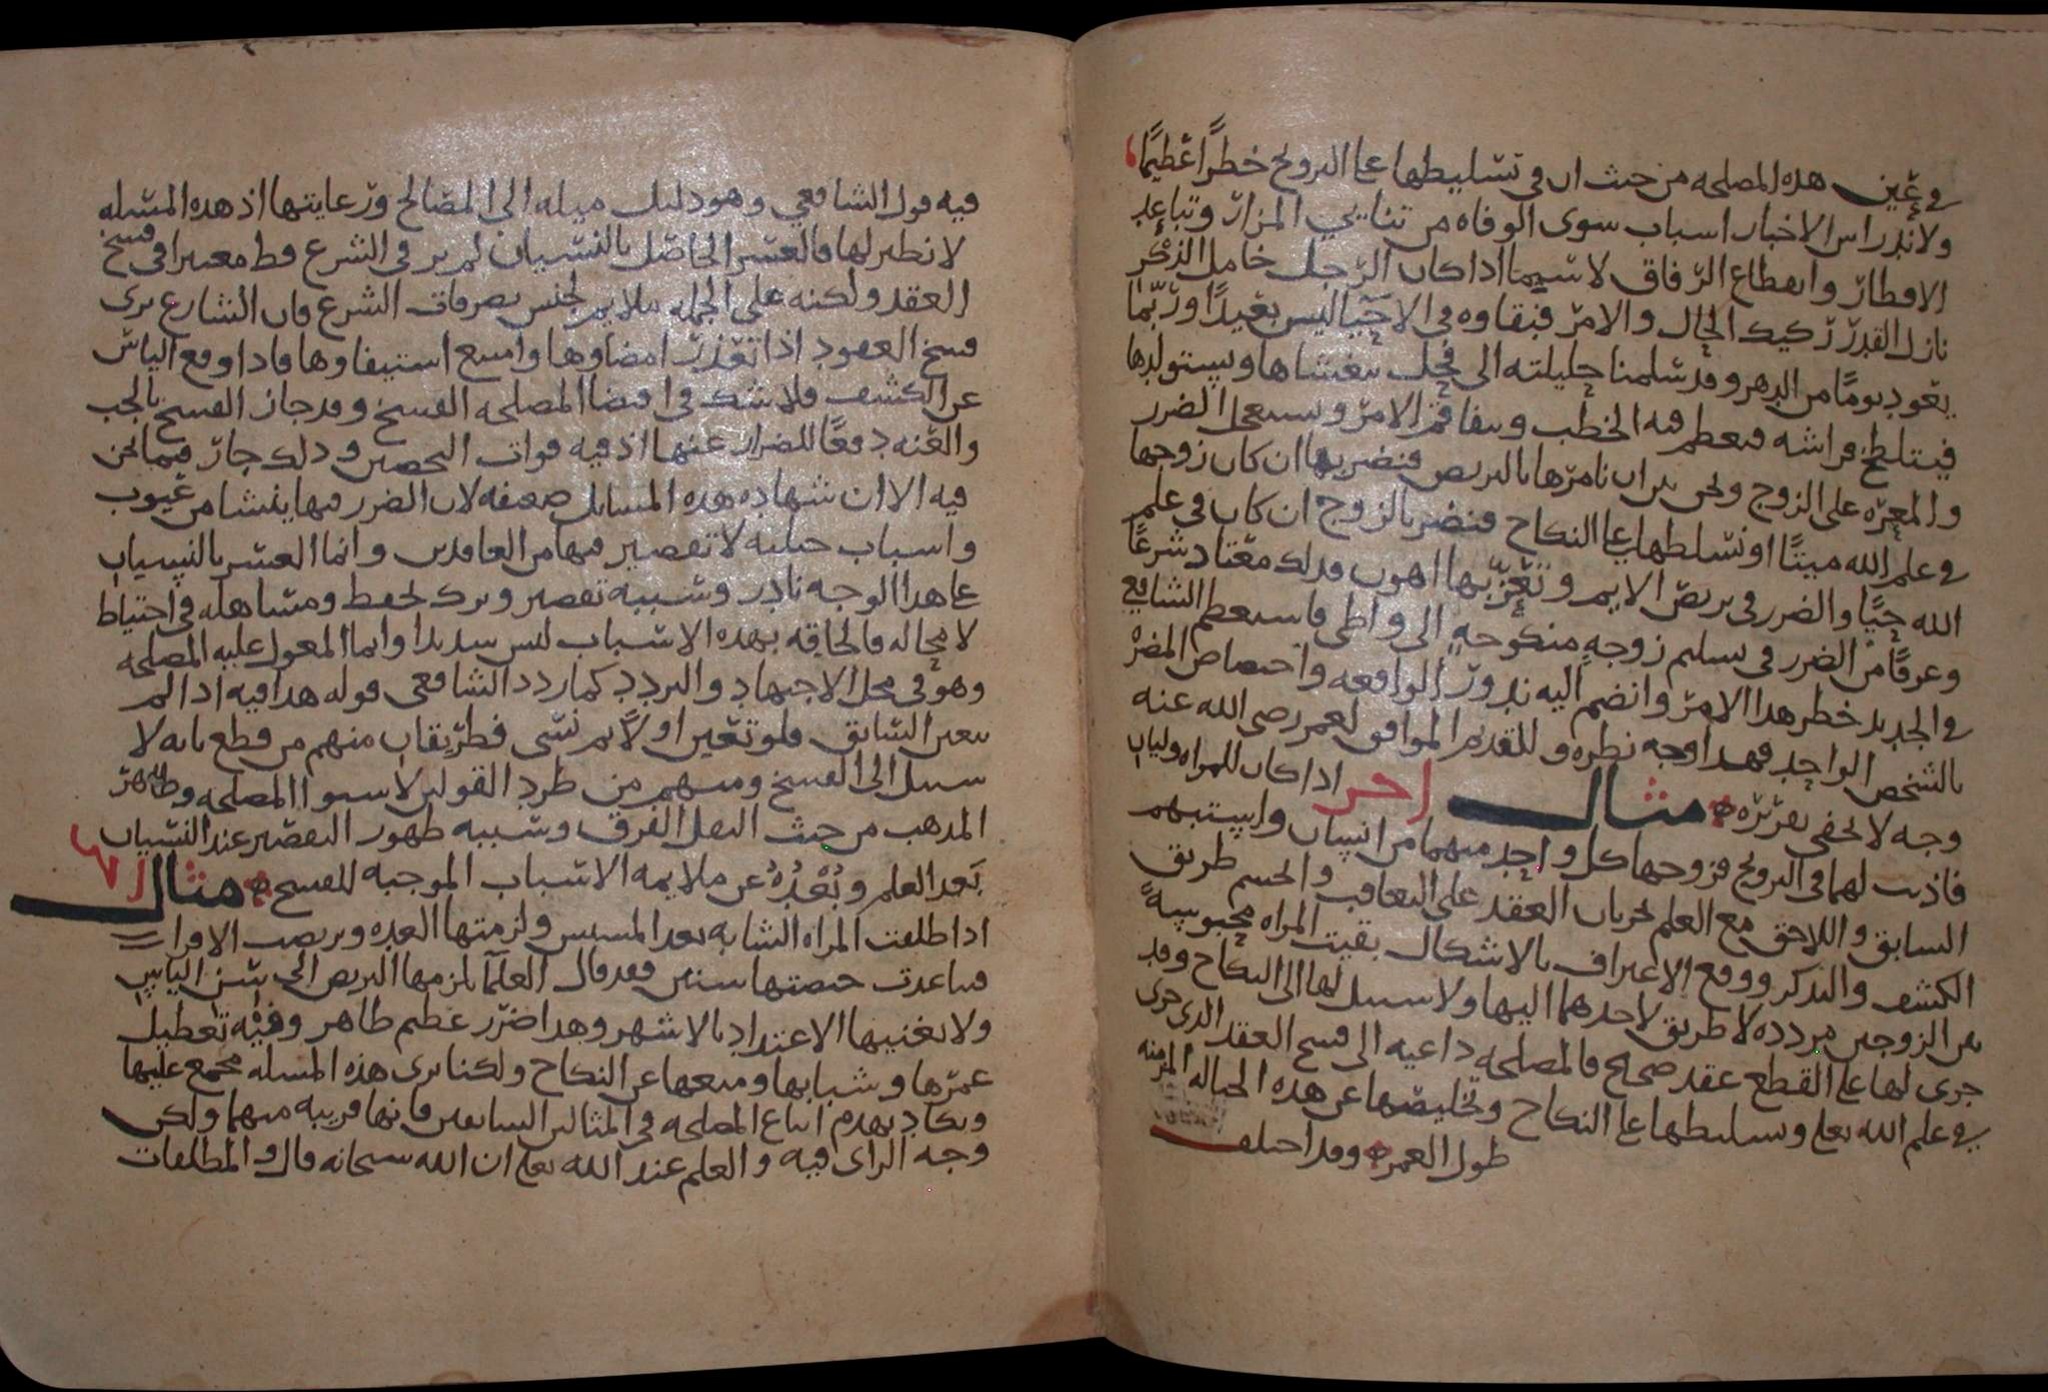 في عين هذه المصلحه من حيث ان في تسليطها على التزويج خطرًا عظيمًا
ولاندراس الاخبار اسباب سوى الوفاه من تنائي المزار وتباعد
الاقطار وانقطاع الرفاق لا سيما اذا كان الرجل خامل الذكر
نازل القدر ركيك الحال والامر فبقاوه في الاحيا ليس بعيدًا وربما
يعود يومًا من الدهر وقد سلمنا حليلته الى فحل يتغشاها ويستولدها
فيتلطخ فراشه فيعظم فيه الخطب ويتفاقم الامر ويستعحل الضرر
والمعره على الزوج ونحن بين ان نامرها بالتربص فنضر بها ان كان زوجها
في علم الله ميتًا او نسلطها على النكاح فنضر بالزوج ان كان في علم
الله حيًا والضرر في تربص الايم وتعزبها اهون فذلك معتاد شرعًا
وعرفًا من الضرر في تسليم زوجه منكوحه الى واطى فاستعظم الشافعي
في الجديد خطر هذا الامر وانضم اليه ندور الواقعه واختصاص المضر
بالشخص الواحد فهذا وجه نظره وللقديم الموافق لعمر رضي الله عنه
وجه لا يخفى تقريره مثال اخر اذا كان للمراه وليان
فاذنت لهما في التزويج فزوجها كل واحد منهما من انسان واستبهم
السابق واللاحق مع العلم بجريان العقد على التعاقب وانحسم طريق
الكشف والتذكر ووقع الاعتراف بالاشكال بقيت المراه محبوسةً
بين الزوجين مردده لا طريق لاحدهما اليها ولا سبيل لها الى النكاح وقد
جرى لها على القطع عقد صحيح فالمصلحه داعيه الى فسخ العقد الذي جرى
في علم الله تعلى وتسليطها على النكاح وتخليصها عن هذه الحباله المزمنه
طول العمر وقد اختلف
فيه قول الشافعي وهو دليل ميله الى المصالح ورعايتها اذ هذه المسله
لا نظير لها فالعسر الحاصل بالنسيان لم ير في الشرع قط معتبرا في فسخ
العقد ولكنه على الجمله ملايم لجنس تصرفات الشرع فان الشارع يرى
فسخ العقود اذا تعذر امضاوها وامتنع استيفاوها فاذا وقع الياس
عن الكشف فلا شك في اقتضا المصلحه الفسخ وقد جاز الفسخ بالجب
والعنه دفعًا للضرار عنها اذ فيه فوات التحصين وذلك جار فيما نحن
فيه الا ان شهاده هذه المسايل ضعيفه لان الضرر فيها ينشا من عيوب
واسباب جبليه لا تقصير فيها من العاقدين وانما العسر بالنسيان
على هذا الوجه نادر وسببه تقصير وترك تحفظ ومساهله في احتياط
لا محاله فالحاقه بهذه الاسباب ليس سديدا وانما المعول عليه المصلحه
وهو في محل الاجتهاد والتردد كما ردد الشافعي قوله هذا فيه اذا لم
يتعين السابق فلو تعين اولًا ثم نسي فطريقان منهم من قطع بانه لا
سبيل الى الفسخ ومنهم من طرد القولين لاستوا المصلحه وظاهر
المذهب من حيث النقل الفرق وسببه ظهور التقصير عند النسيان
بَعد العلم وبُعْدُهُ عن ملايمه الاسباب الموجبه للفسخ مثال
اذا طلقت المراه الشابه بعد المسيس ولزمتها العده وتربصت الاقرا
فتباعدت حيضتها سنين فقد قال العلمآ يلزمها التربص الى سن الياس
ولا يغنيها الاعتداد بالاشهر وهذا ضرر عظيم ظاهر وفيه تعطيل
عمرها وشبابها ومنعها عن النكاح ولكنا نرى هذه المسله مجمع عليها
ويكاد يهدم اتباع المصلحه في المثالين السابقين فانها قريبه منهما ولكن
وجه الراى فيه والعلم عند الله تعلى ان الله سبحانه قال والمطلقات